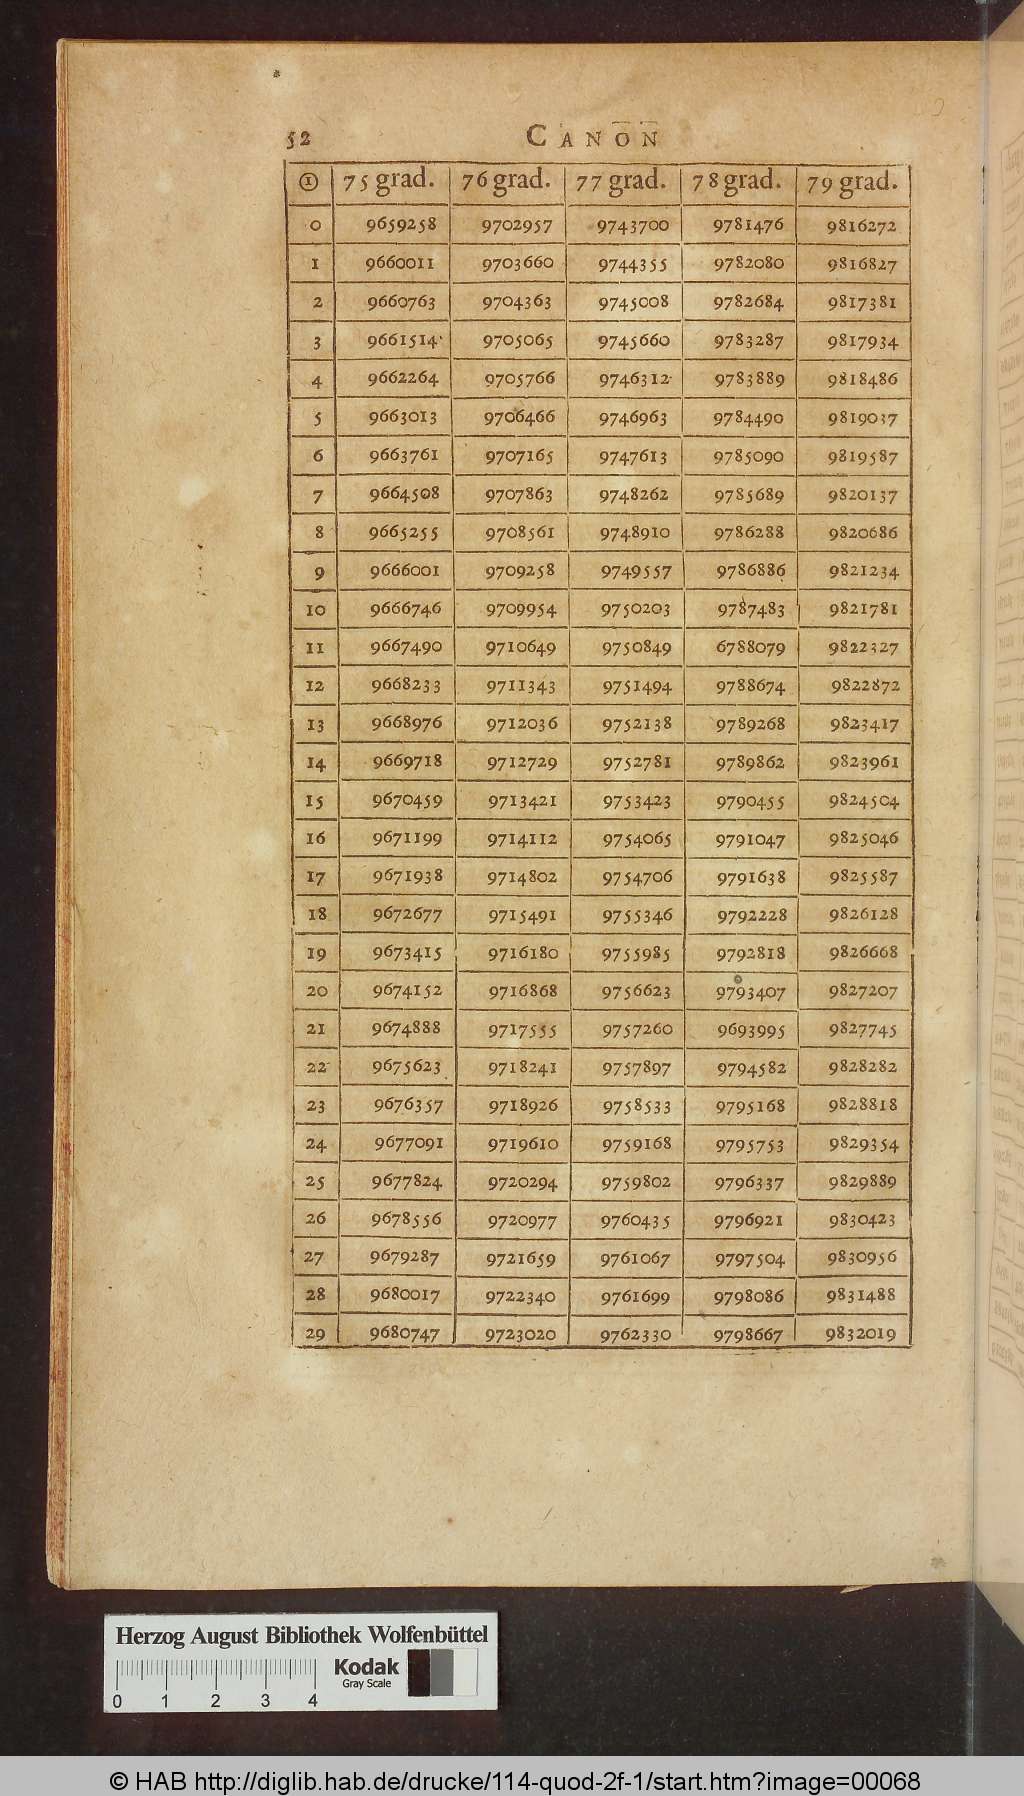 52 CANON
① 75 grad. 76 grad. 77 grad. 78 grad. 79 grad.
0 9659258 9702957 9743700 9781476 9816272
1 9660011 9703660 9744355 9782080 9816827
2 9660763 9704363 9745008 9782684 9817381
3 9661514 9705065 9745660 9783287 9817934
4 9662264 9705766 9746312 9783889 9818486
5 9663013 9706466 9746963 9784490 9819037
6 9663761 9707165 9747613 9785090 9819587
7 9664508 9707863 9748262 9785689 9820137
8 9665255 9708561 9748910 9786288 9820686
9 9666001 9709258 9749557 9786886 9821234
10 9666746 9709954 9750203 9787483 9821781
11 9667490 9710649 9750849 6788079 9822327
12 9668233 9711343 9751494 9788674 9822872
13 9668976 9712036 9752138 9789268 9823417
14 9669718 9712729 9752781 9789862 9823961
15 9670459 9713421 9753423 9790455 9824504
16 9671199 9714112 9754065 9791047 9825046
17 9671938 9714802 9754706 9791638 9825587
18 9672677 9715491 9755346 9792228 9826128
19 9673415 9716180 9755985 9792818 9826668
20 9674152 9716868 9756623 9793407 9827207
21 9674888 9717555 9757260 9693995 9827745
22 9675623 9718241 9757897 9794582 9828282
23 9676357 9718926 9758533 9795168 9828818
24 9677091 9719610 9759168 9795753 9829354
25 9677824 9720294 9759802 9796337 9829889
26 9678556 9720977 9760435 9796921 9830423
27 9679287 9721659 9761067 9797504 9830956
28 9680017 9722340 9761699 9798086 9831488
29 9680747 9723020 9762330 9798667 9832019
Herzog August Bibliothek Wolfenbüttel
Kodak
Gray Scale
0 1 2 3 4
© HAB http://diglib.hab.de/drucke/114-quod-2f-1/start.htm?image=00068